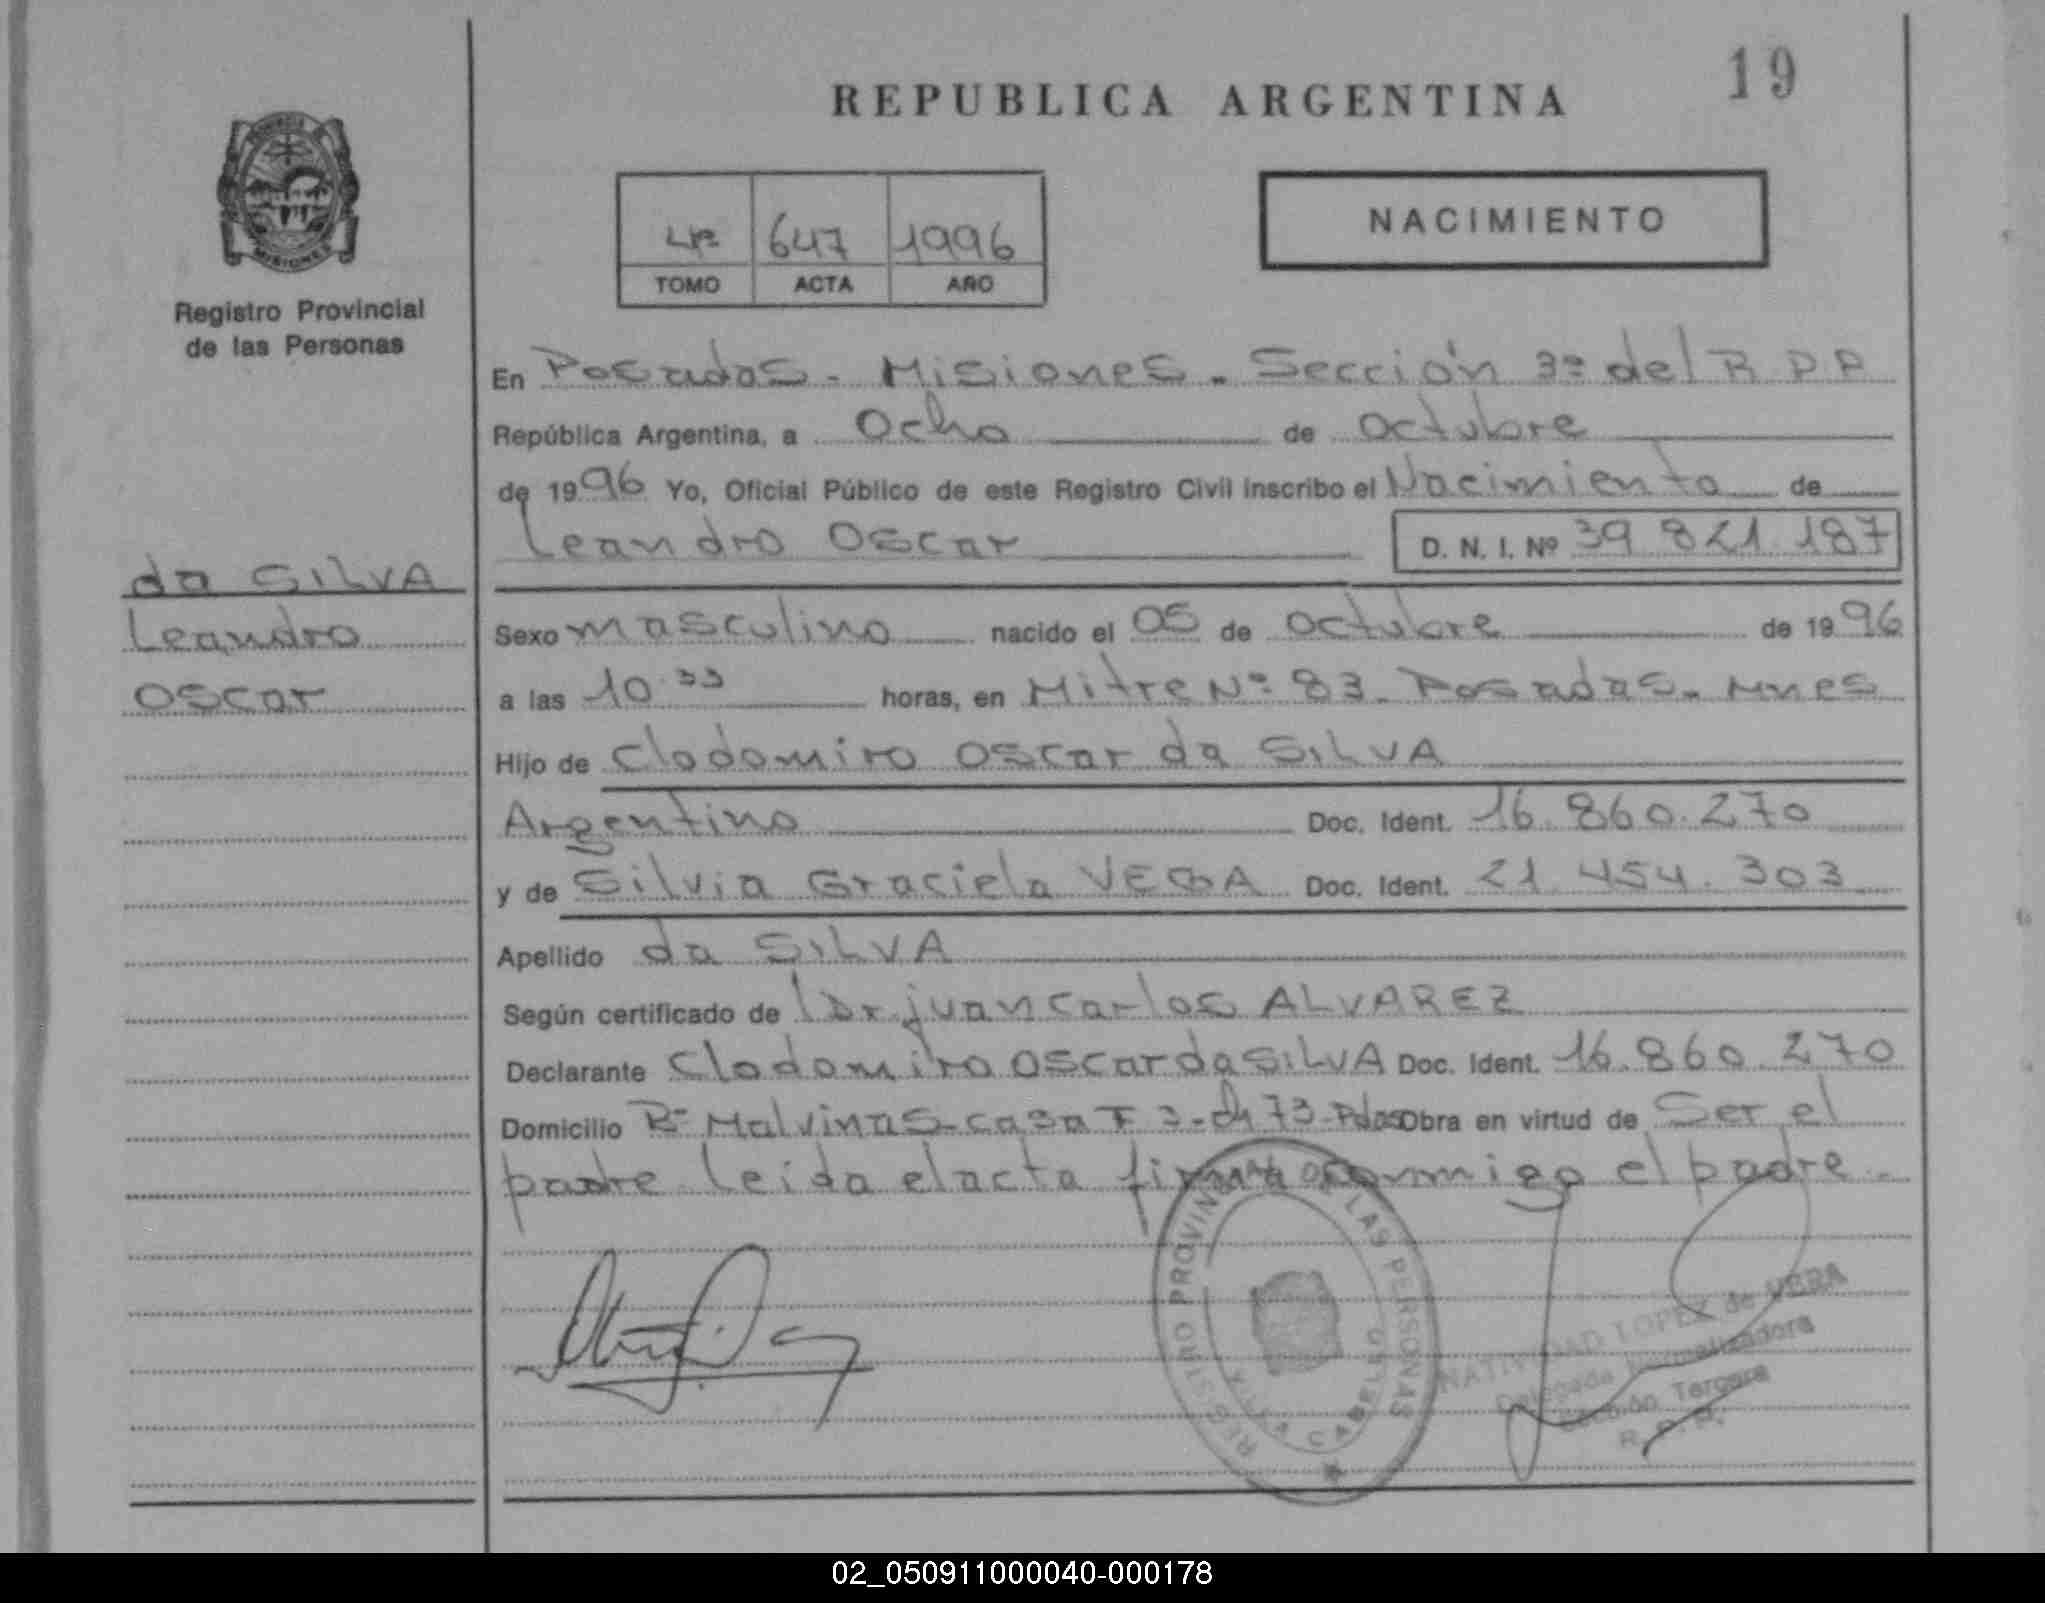 19
REPUBLICA ARGENTINA
PROVINCIA DE
MISIONES
Registro Provincial
de las Personas
4º 647 1996
TOMO ACTA AÑO
NACIMIENTO
En Posadas - Misiones - Sección 3º del R P P
República Argentina, a Ocho de Octubre
de 1996 Yo, Oficial Público de este Registro Civil inscribo el Nacimiento de
Leandro Oscar D. N. I. Nº 39 821 187
da SILVA
Leandro
Oscar
Sexo masculino nacido el 05 de Octubre de 1996
a las 10.33 horas, en Mitre Nº 83 - Posadas - Mnes
Hijo de Clodomiro Oscar da SILVA
Argentino Doc. Ident. 16.860.270
y de Silvia Graciela VEGA Doc. Ident. 21.454.303
Apellido da SILVA
Según certificado de l Dr. juan Carlos ALVAREZ
Declarante Clodomiro Oscar da SILVA Doc. Ident. 16.860.270
Domicilio Bº Malvinas - casa F 3 - ch 73 - Pdas Obra en virtud de Ser el
padre leida el acta firma conmigo el padre -
REGISTRO PROVINCIAL DE LAS PERSONAS
NATIVIDAD LOPEZ de VERA
Delegada Normalizadora
Sección Tercera
R. P. P.
02_050911000040-000178